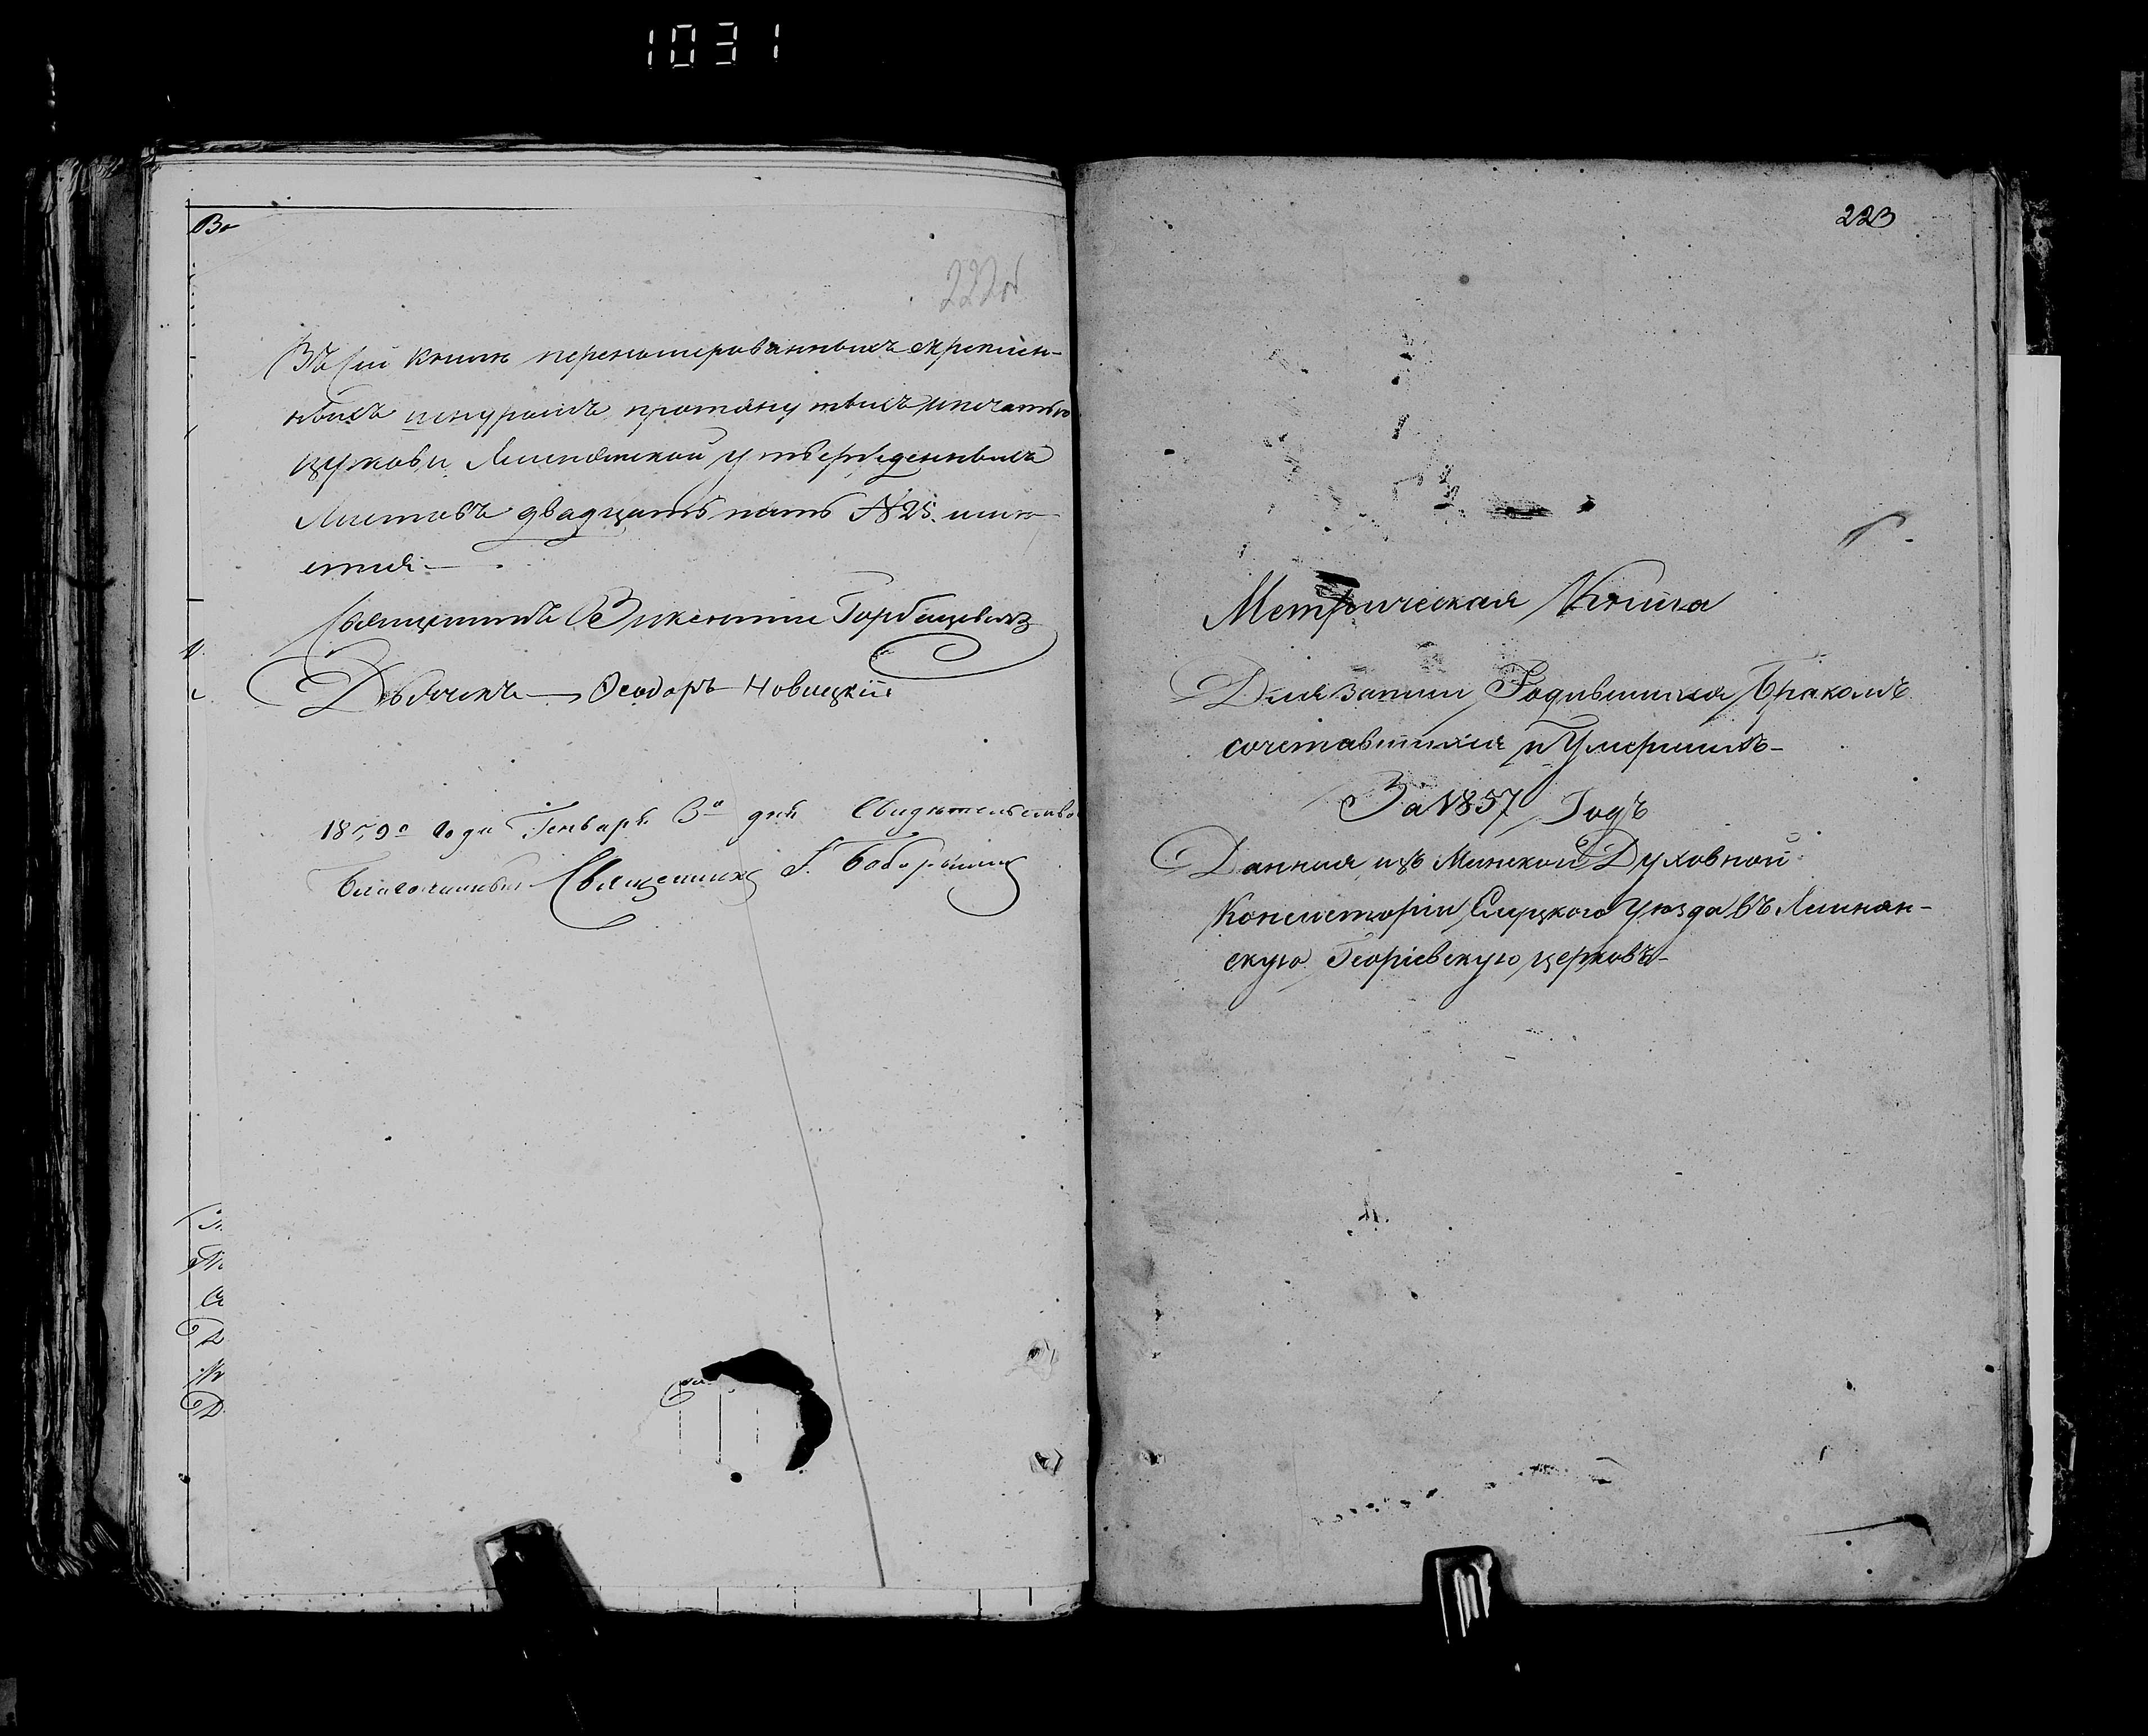 1031
Во
222об
Въ сей книгѣ перенумерованныхъ скрѣплен-
ныхъ шнуромъ протянутыхъ печатью
церкови Лешнянской утвержденныхъ
Листовъ двадцать пять № 25.
Священникъ Викентий Горбацевичъ
Дьячекъ Ѳеодоръ Новицкій
1859го года Генваря 3го дня Свидѣтельствовалъ
Благочинный Священникъ
223
Метрическая Книга
Для записи Родившихся, Бракомъ
сочетавшихся и Умершихъ
За 1857 Годъ
Данная изъ Минской Духовной
Консисторіи Слуцкого Уѣзда въ Лешнян-
скую Георіевскую церковъ